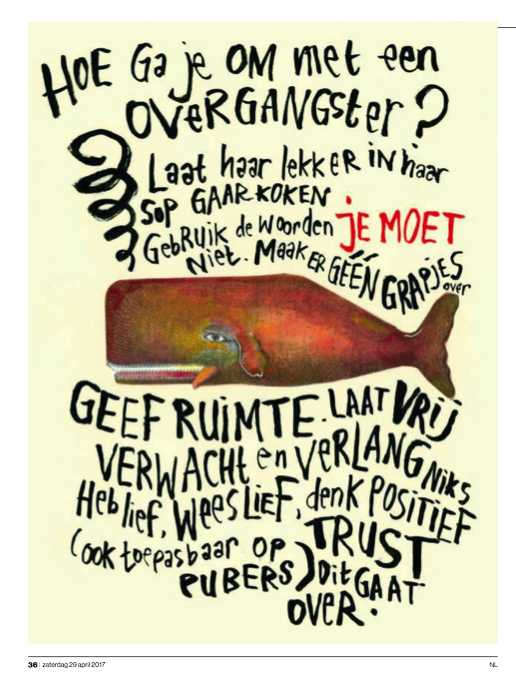 HOE Ga je OM met een
OVERGANGSter?
Laat haar lekkER iN haar
SOP GAARKOKEN
GebRUiK de Woorden jE MOET
Niet. MaaK ER GÉÉN GRAPjES over
GEEF RUiMTE. LAAT VRIJ
VERWACHt en VERLANG NiKS
Heb lief, Wees LiEF, denk POSiTiEF
(ook toepasbaar OP PUBERS) TRUST
Dit GAAT
OVER.
36 | zaterdag 29 april 2017
NL